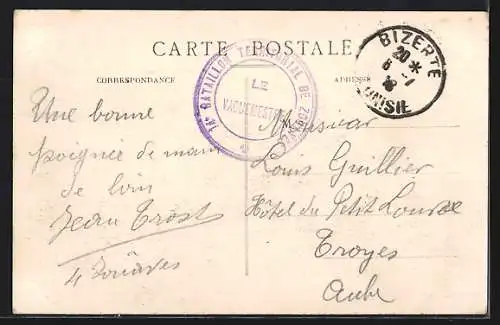 CARTE POSTALE
CORRESPONDANCE
ADRESSE
14e BATAILLON TERRITORIAL DE ZOUAVES
LE
VAGUEMESTRE
BIZERTE
20 *
6 -7
18
TUNISIE
Une bonne
poignée de main
de loin
Jean Trost
4 Zouaves
Monsieur
Louis Guillier
Hôtel du Petit Louvre
Troyes
Aube